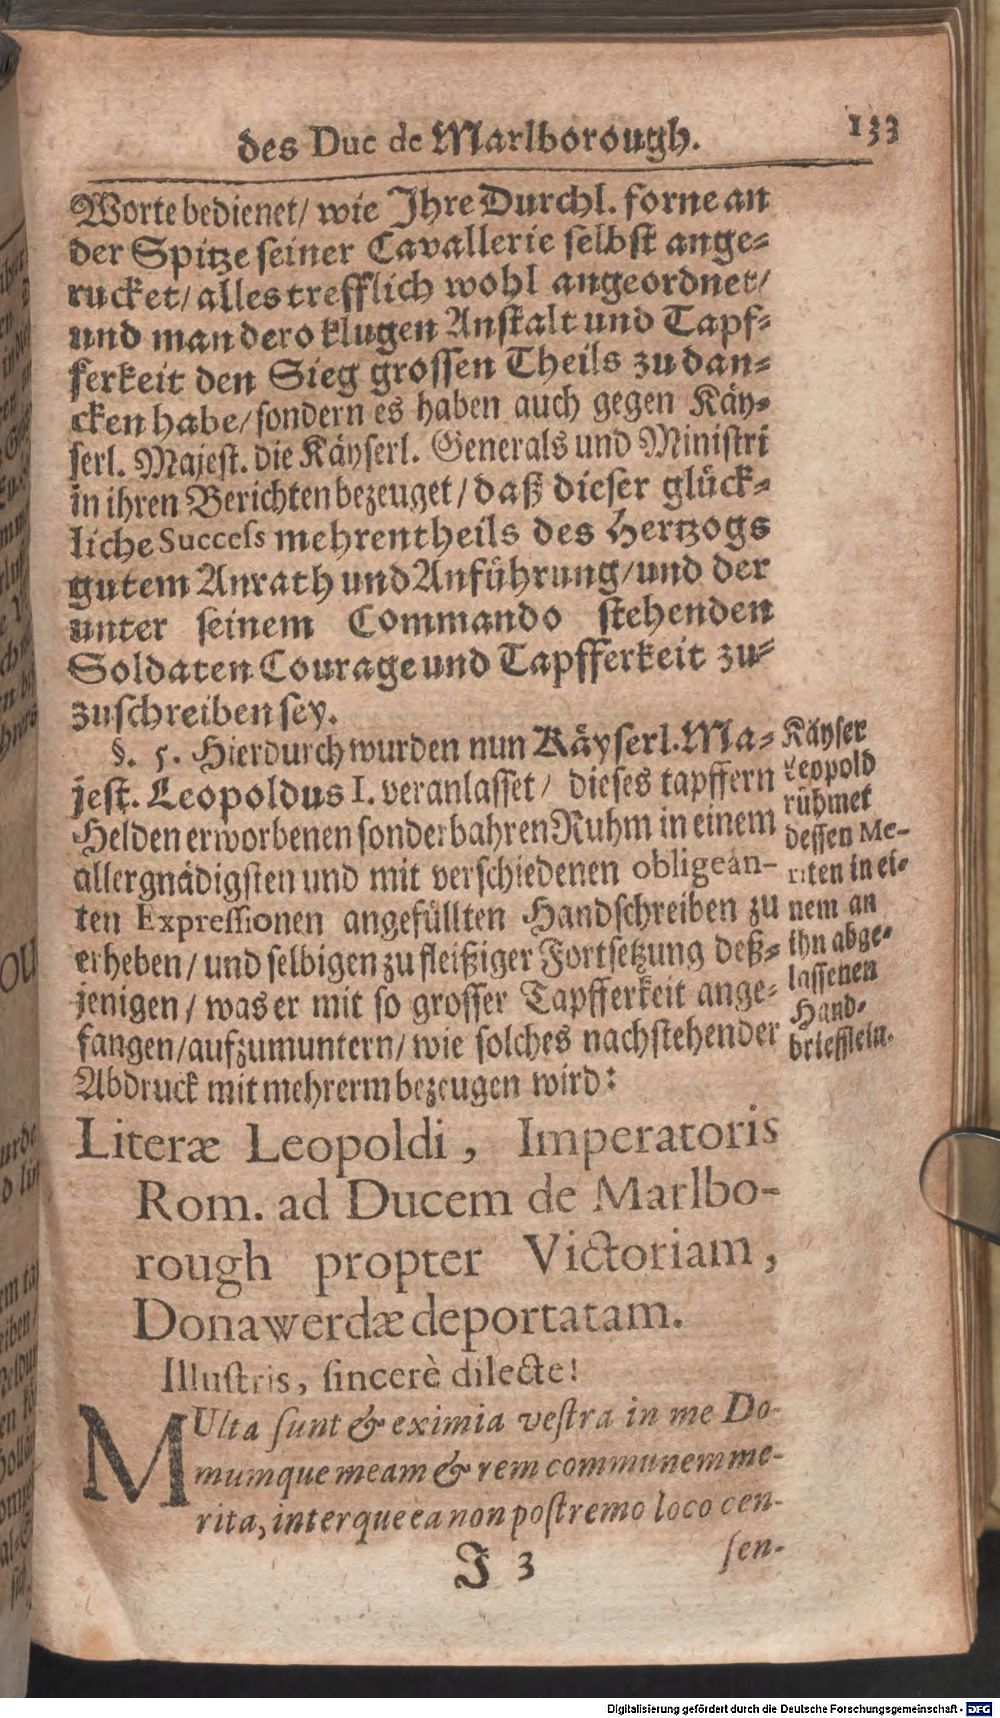 des Duc de Marlborough. 133
Worte bedienet/ wie Ihre Durchl. forne an
der Spitze seiner Cavallerie selbst ange-
rucket/ alles trefflich wohl angeordnet/
und man dero klugen Anstalt und Tapf-
ferkeit den Sieg grossen Theils zu dan-
cken habe/ sondern es haben auch gegen Käy-
serl. Majest. die Käyserl. Generals und Ministri
in ihren Berichten bezeuget/ daß dieser glück-
liche Success mehrentheils des Hertzogs
gutem Anrath und Anführung/ und der
unter seinem Commando stehenden
Soldaten Courage und Tapfferkeit zu-
zuschreiben sey.
§. 5. Hierdurch wurden nun Käyserl. Ma-
jest. Leopoldus I. veranlasset/ dieses tapffern
Helden erworbenen sonderbahren Ruhm in einem
allergnädigsten und mit verschiedenen obligean-
ten Expressionen angefüllten Handschreiben zu
erheben/ und selbigen zu fleißiger Fortsetzung deß-
jenigen/ was er mit so grosser Tapfferkeit ange-
fangen/ aufzumuntern/ wie solches nachstehender
Abdruck mit mehrerm bezeugen wird:
Käyser
Leopold
rühmet
dessen Me-
riten in ei-
nem an
ihn abge-
lassenen
Hand-
briefflein.
Literæ Leopoldi, Imperatoris
Rom. ad Ducem de Marlbo-
rough propter Victoriam,
Donawerdæ deportatam.
Illustris, sincerè dilecte!
MUlta sunt & eximia vestra in me Do-
mumque meam & rem communem me-
rita, interque ea non postremo loco cen-
J 3 sen-
Digitalisierung gefördert durch die Deutsche Forschungsgemeinschaft - DFG